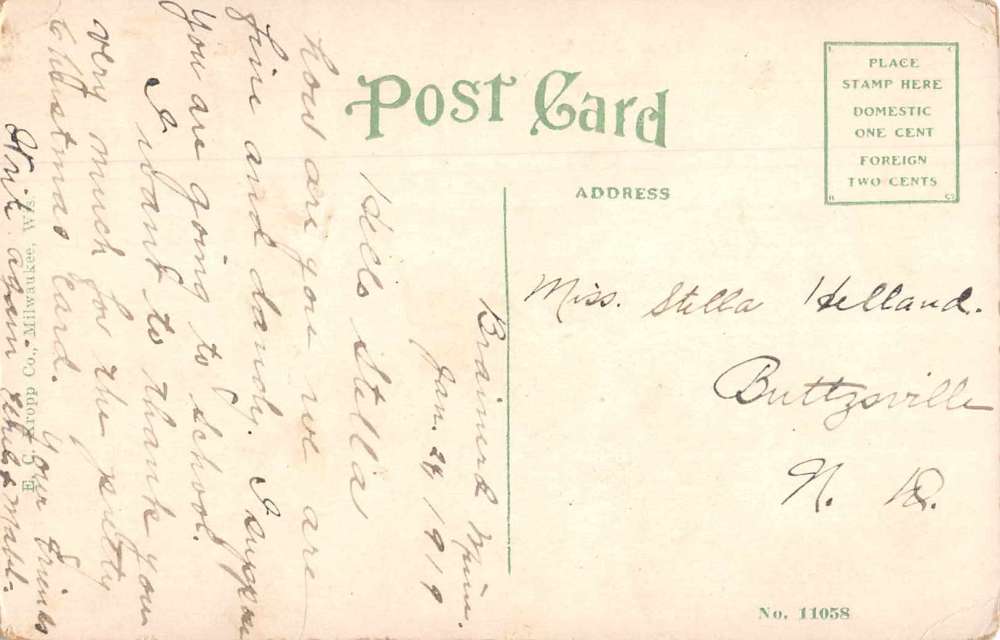 POST CARD
PLACE
STAMP HERE
DOMESTIC
ONE CENT
FOREIGN
TWO CENTS
ADDRESS
Miss. Stella Helland.
Buttzsville
N. D.
Brainerd Minn.
Jan. 24 1919
Hello Stella
how are you we are
fine and dandy. I suppose
you are going to school.
I want to thank you
very much for the pretty
Christmas Card. Your Friends
Write again Mabl.
E. C. Kropp Co., Milwaukee, Wis.
No. 11058